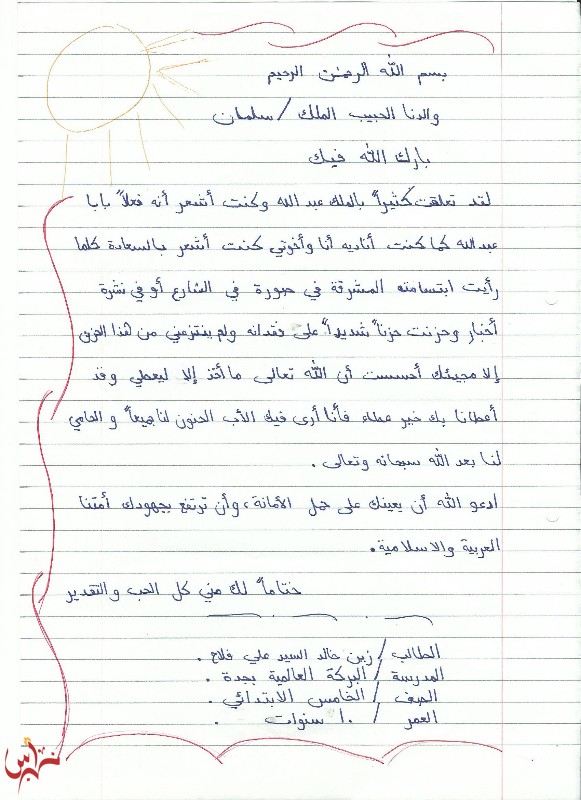 بسم الله الرحمن الرحيم
والدنا الحبيب الملك / سلمان
بارك الله فيك
لقد تعلقت كثيراً بالملك عبد الله وكنت أشعر أنه فعلاً بابا
عبد الله كما كنت أناديه أنا وأخوتي كنت أشعر بالسعادة كلما
رأيت ابتسامته المشرقة في صورة في الشارع أو في نشرة
أخبار وحزنت حزناً شديداً على فقدانه ولم ينتزعني من هذا الحزن
إلا مجيئك أحسست أن الله تعالى ما أخذ إلا ليعطي وقد
أعطانا بك خير عطاء فأنا أرى فيك الأب الحنون لنا جميعاً والحامي
لنا بعد الله سبحانه وتعالى .
ادعو الله أن يعينك على حمل الأمانة، وأن ترتفع بجهودك أمتنا
العربية والاسلامية.
ختاماً لك مني كل الحب والتقدير
الطالب / زين خالد السيد علي فلاح .
المدرسة / البركة العالمية بجدة .
الصف / الخامس الابتدائي .
العمر / ١٠ سنوات .